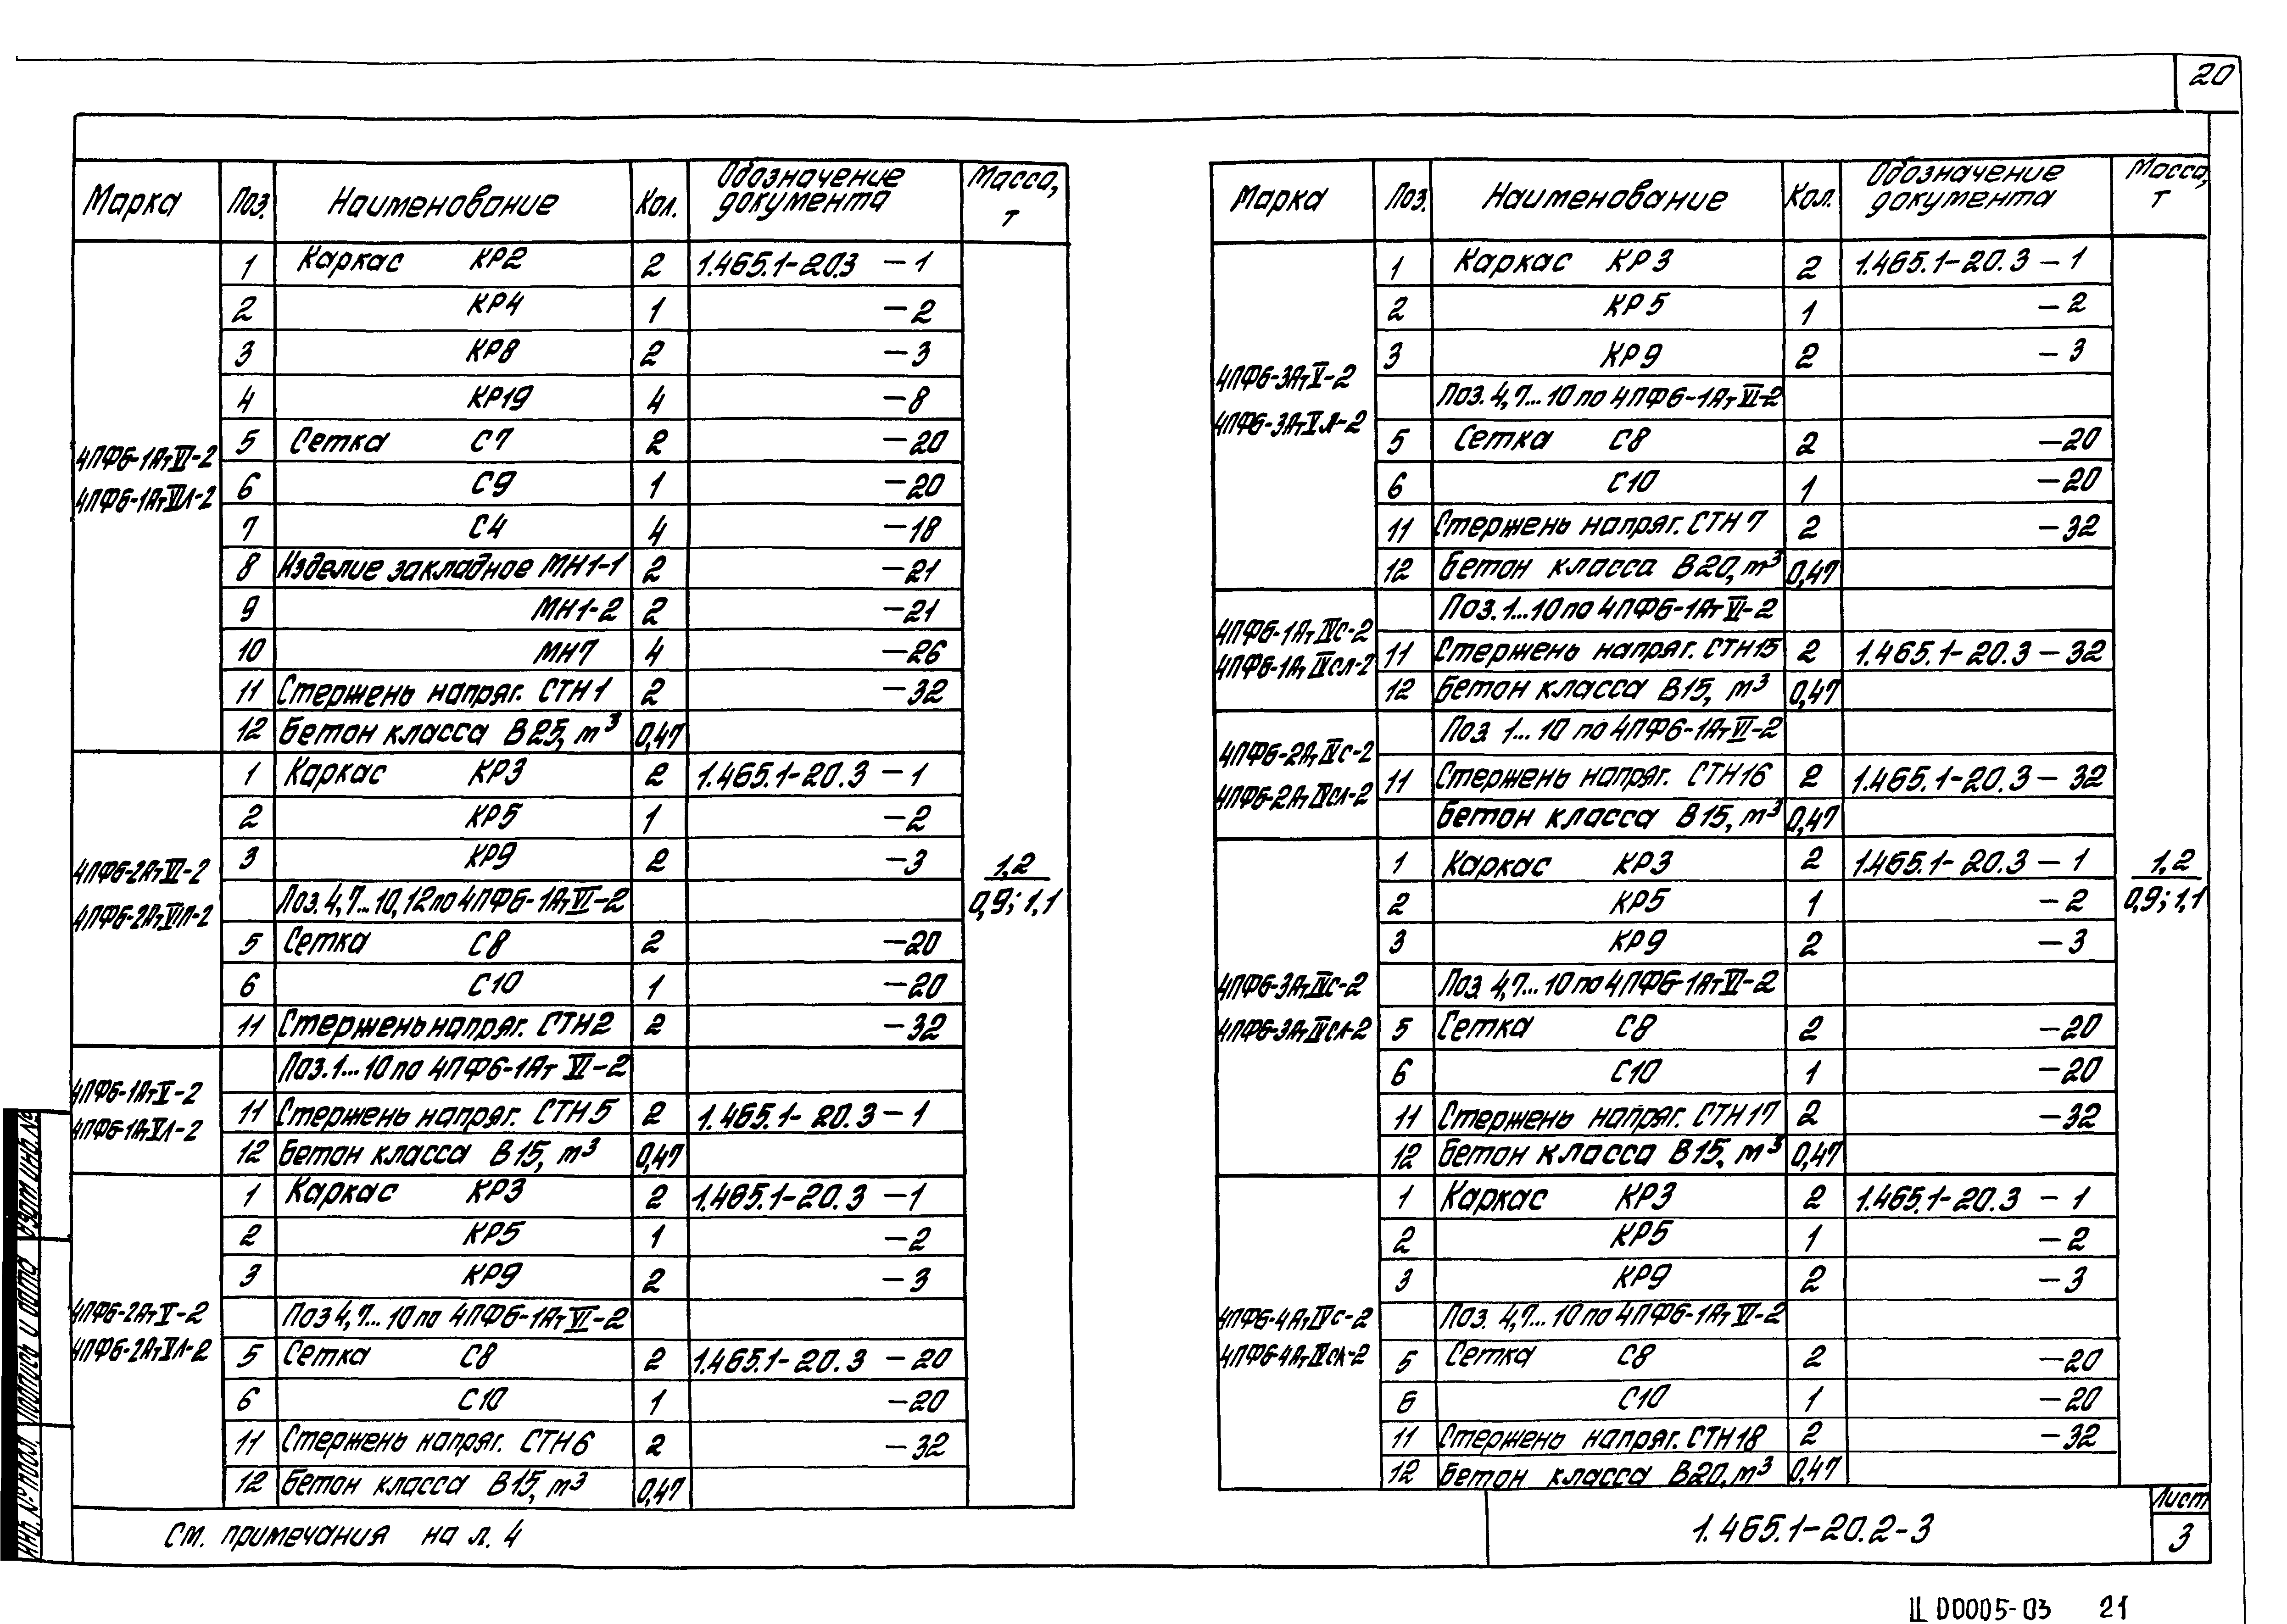 20
Марка Поз. Наименование Кол. Обозначение документа Масса, т
4ПФ6-1АтVI-2
4ПФ6-1АтVIЛ-2
1 Каркас КР2 2 1.465.1-20.3 -1
2 КР4 1 -2
3 КР8 2 -3
4 КР19 4 -8
5 Сетка С7 2 -20
6 С9 1 -20
7 С4 4 -18
8 Изделие закладное МН1-1 2 -21
9 МН1-2 2 -21
10 МН7 4 -26
11 Стержень напряг. СТН1 2 -32
12 Бетон класса В25, м³ 0,47
4ПФ6-2АтVI-2
4ПФ6-2АтVIЛ-2
1 Каркас КР3 2 1.465.1-20.3 -1
2 КР5 1 -2
3 КР9 2 -3
Поз. 4,7...10,12 по 4ПФ6-1АтVI-2
5 Сетка С8 2 -20
6 С10 1 -20
11 Стержень напряг. СТН2 2 -32
1,2
0,9; 1,1
4ПФ6-1АтV-2
4ПФ6-1АтVЛ-2
Поз. 1...10 по 4ПФ6-1Ат VI-2
11 Стержень напряг. СТН5 2 1.465.1-20.3-1
12 Бетон класса В15, м³ 0,47
4ПФ6-2АтV-2
4ПФ6-2АтVЛ-2
1 Каркас КР3 2 1.465.1-20.3 -1
2 КР5 1 -2
3 КР9 2 -3
Поз 4,7...10 по 4ПФ6-1АтVI-2
5 Сетка С8 2 1.465.1-20.3 -20
6 С10 1 -20
11 Стержень напряг. СТН6 2 -32
12 Бетон класса В15, м³ 0,47
См. примечания на л. 4
Марка Поз. Наименование Кол. Обозначение документа Масса, т
4ПФ6-3АтV-2
4ПФ6-3АтVЛ-2
1 Каркас КР3 2 1.465.1-20.3-1
2 КР5 1 -2
3 КР9 2 -3
Поз. 4,7...10 по 4ПФ6-1АтVI-2
5 Сетка С8 2 -20
6 С10 1 -20
11 Стержень напряг. СТН7 2 -32
12 Бетон класса В20, м³ 0,47
4ПФ6-1АтIVС-2
4ПФ6-1АтIVСЛ-2
Поз. 1...10 по 4ПФ6-1АтVI-2
11 Стержень напряг. СТН15 2 1.465.1-20.3-32
12 Бетон класса В15, м³ 0,47
4ПФ6-2АтIVС-2
4ПФ6-2АтIVСЛ-2
Поз. 1...10 по 4ПФ6-1АтVI-2
11 Стержень напряг. СТН16 2 1.465.1-20.3-32
Бетон класса В15, м³ 0,47
4ПФ6-3АтIVС-2
4ПФ6-3АтIVСЛ-2
1 Каркас КР3 2 1.465.1-20.3-1
2 КР5 1 -2
3 КР9 2 -3
Поз. 4,7...10 по 4ПФ6-1АтVI-2
5 Сетка С8 2 -20
6 С10 1 -20
11 Стержень напряг. СТН17 2 -32
12 Бетон класса В15, м³ 0,47
1,2
0,9; 1,1
4ПФ6-4АтIVС-2
4ПФ6-4АтIVСЛ-2
1 Каркас КР3 2 1.465.1-20.3 -1
2 КР5 1 -2
3 КР9 2 -3
Поз. 4,7...10 по 4ПФ6-1АтVI-2
5 Сетка С8 2 -20
6 С10 1 -20
11 Стержень напряг. СТН18 2 -32
12 Бетон класса В20, м³ 0,47
1.465.1-20.2-3
Лист
3
Инв. № подл. Подпись и дата Взам инв. №
Ц00005-03 21